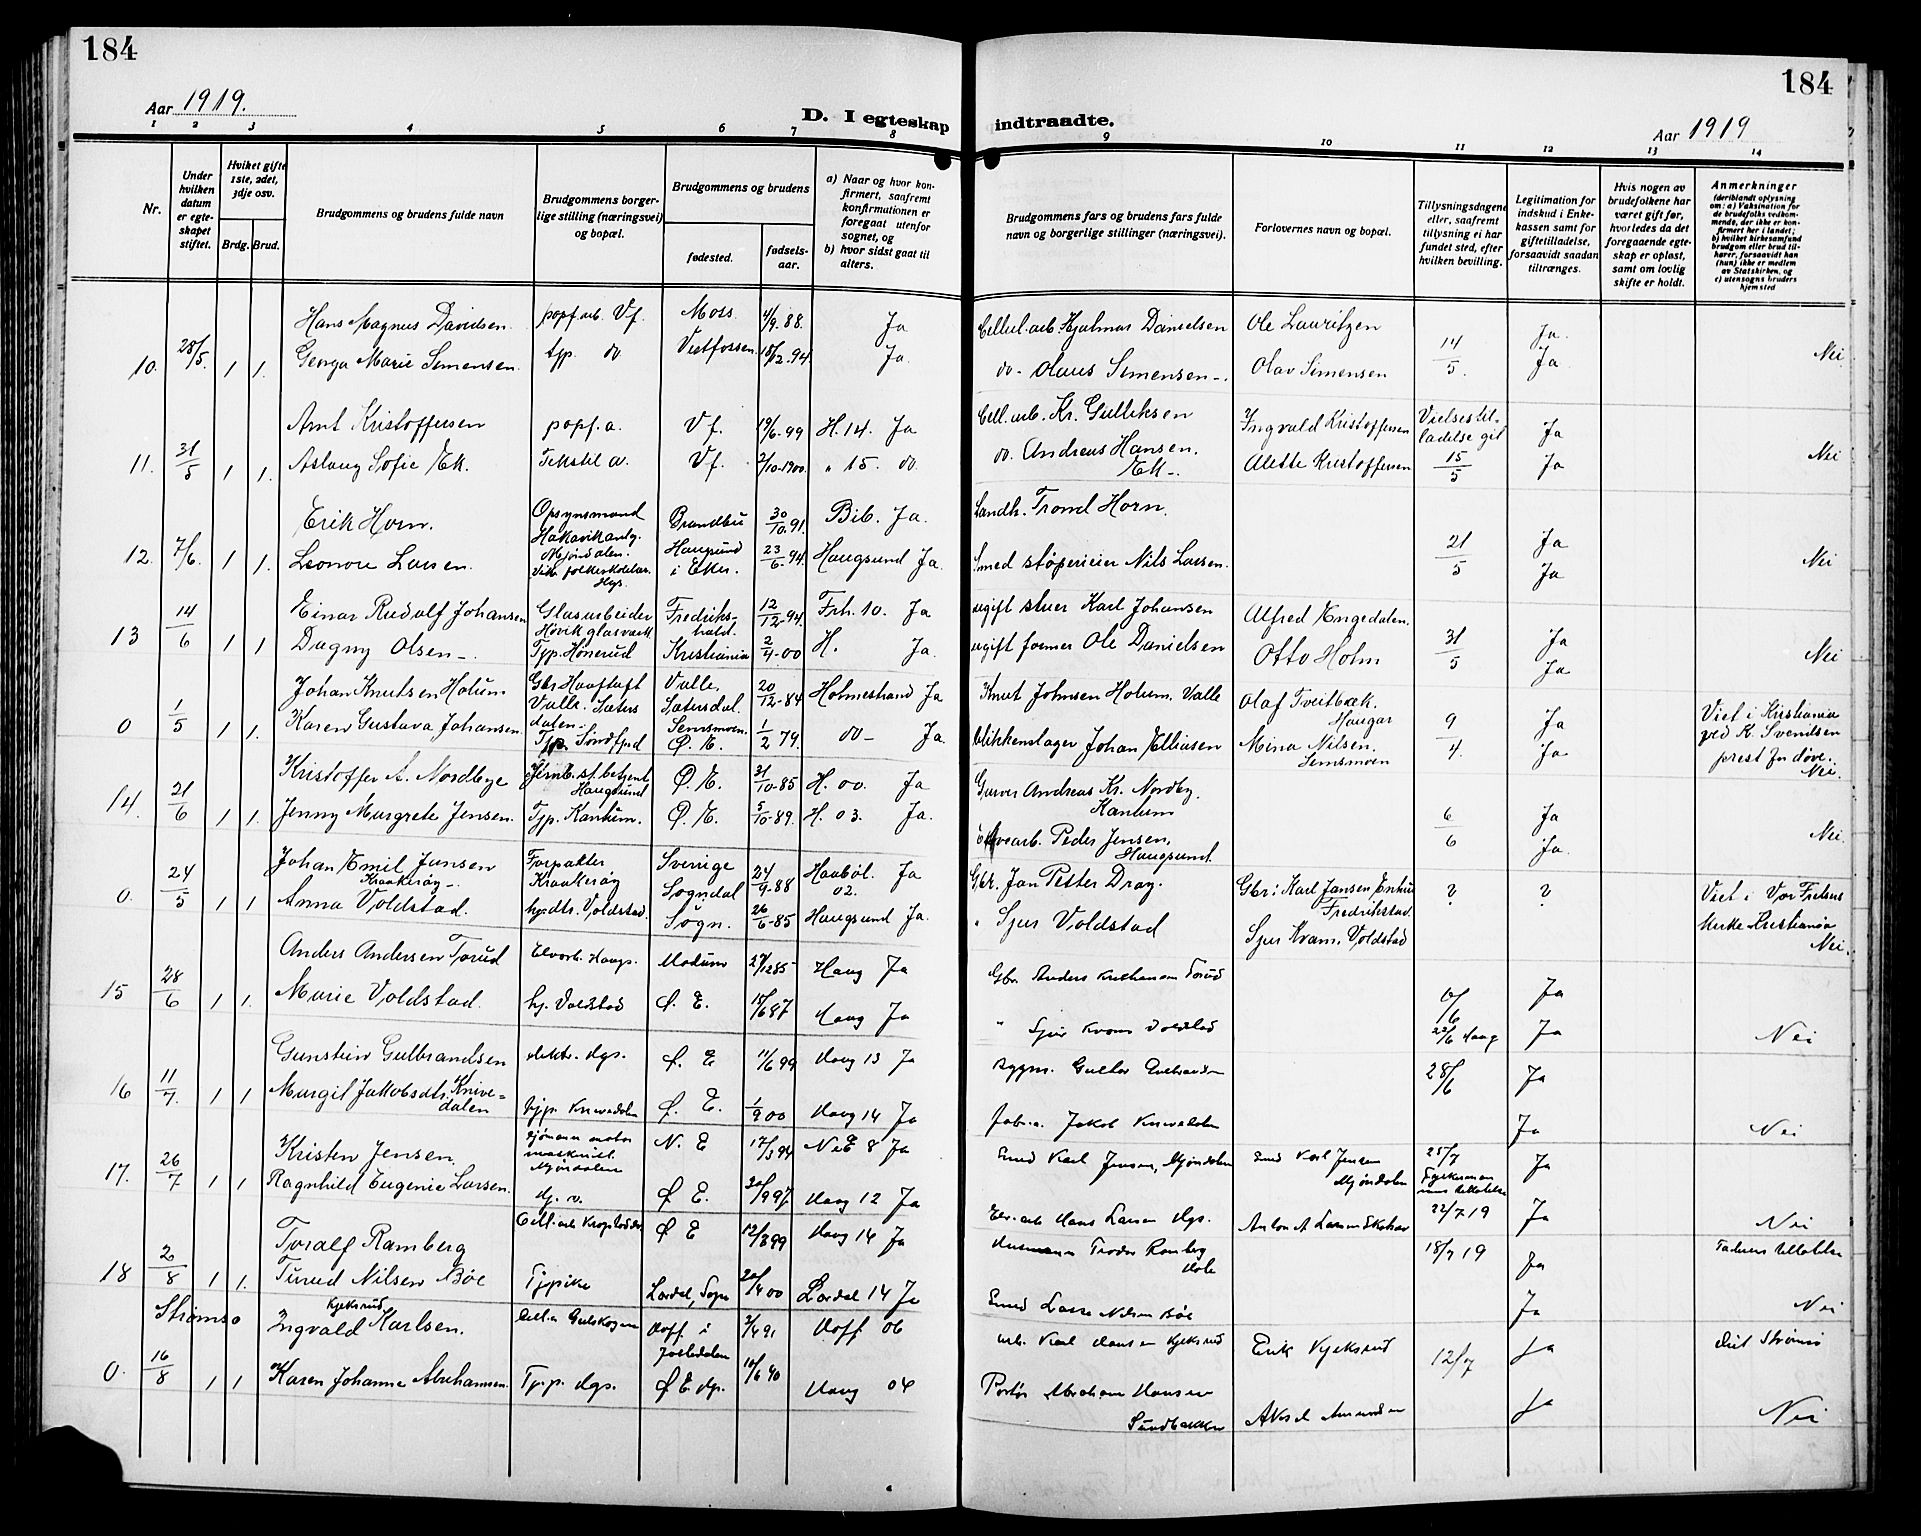 184
184
Aar 1919.
D. I egteskap indtraadte.
Aar 1919
1 2 3 4 5 6 7 8 9 10 11 12 13 14
Nr.
Under hvilken datum er egteskapet stiftet.
Hvilket gifte 1ste, 2det, 3dje osv.
Brdg. Brud.
Brudgommens og brudens fulde navn
Brudgommens borgerlige stilling (næringsvei) og bopæl.
Brudgommens og brudens
fødested.
fødselsaar.
a) Naar og hvor konfirmert, saafremt konfirmationen er foregaat utenfor sognet, og
b) hvor sidst gaat til alters.
Brudgommens fars og brudens fars fulde navn og borgerlige stillinger (næringsvei).
Forlovernes navn og bopæl.
Tillysningsdagene eller, saafremt tillysning ei har fundet sted, efter hvilken bevilling.
Legitimation for indskud i Enkekassen samt for giftetilladelse, forsaavidt saadan tiltrænges.
Hvis nogen av brudefolkene har været gift før, hvorledes da det foregaaende egteskap er opløst, samt om lovlig skifte er holdt.
Anmerkninger (deriblandt oplysning om: a) Vaksination for de brudefolks vedkommende, der ikke er konfirmert her i landet; b) hvilket kirkesamfund brudgom eller brud tilhører, forsaavidt han (hun) ikke er medlem av Statskirken, og c) utensogns bruders hjemsted
Hans Magnus Davidsen. popf.arb. Vf. Moss 4/9. 88. Ja Cellul. arb Hjalmar Danielsen Ole Lauritzen Ja.
10. 28/5. 1 1. Georga Marie Simensen. tjp. do Vestfossen 18/2. 94. Ja. do - Olaus Simensen -. Olav Simensen 14/5. Ja Nei
Arnt Kristoffersen popf. a. Vf. 19/6-99 H. 14. Ja Cell. arb. Kr. Gulliksen Ingvald Kristoffersen Vielsestilladelse git Ja
11. 31/5 1 1. Aslaug Sofie Ek. Tekstil a. Vf. 2/10-1900. " 15. do do. Andreas Hansen. Ek -. Alette Kristoffersen 15/5 Ja Nei
Erik Horn. Opsynsmand Hakavik anlg. Mjøndalen. Brandbu 30/10. 91. Bib. Ja. Landh. Trond Horn. Ja
12. 7/6. 1 1. Leonore Larsen. Vik. folkeskolelær. Hgs. Haugsund i Eker. 23/6. 94. Haugsund Ja. Smed støperieier Nils Larsen. 21/5 Ja Nei
Einar Rudolf Johansen Glasarbeider Høvik glasværk Fredrikshald. 12/12-94. Frh. 10. Ja ugift stuer Karl Johansen Alfred Engedalen. Ja
13 14/6 1 1 Dagny Olsen -. Tjp. Hønerud Kristiania 2/4-00 H. Ja. ugift former Ole Danielsen Otto Holm 31/5 Ja Nei
Johan Knutsen Hotum Valle. Sætersdalen - Valle, Sætersdal. 20/12-84 Holmestrand Ja Knut Johnsen Hotum. Valle Olaf Tveitbæk. Haugar Ja
0 1/5 1 1. Karen Gustava Johansen. Semsmoen. Ø. E. 1/2 79. do - Ja. blikkenslager Johan Elliasen Mina Nilsen. Semsmoen 9/4. Ja Viet i Kristiania ved K. Svendsen prest for døve. Nei.
Kristoffer A. Nordbye Jernb. st. betjent Haugsund Ø. E. 31/10-85 H. 00. Ja Andreas Kr. Nordby. Ja
14. 21/6 1 1. Jenny Margrete Jensen. Tjp. Ø. E. 5/10-89. H. 03. Ja. Peder Jensen, Haugsund 6/6 Ja. Nei
Johan Emil Jansen Kraakerøy -. Forpakter Kraakerøy Sverige 24/9-88 Haabøl. 02. Ja Gbr. Jan Petter Gbr: Karl Jansen, Fredrikstad. ? ?
0. 24/5 1 1 Anna Voldstad. hjp. dtr. Voldstad. Sogndal Sogn. 26/6-85 Haugsund Ja. " Sjur Voldstad Sjur Kvam, Voldstad Viet i Vor Frelsers kirke Kristiania Nei.
Anders Andersen Torud Modum Haug Ja Gbr. Anders Torud Ja
15 28/6 1 1. Marie Voldstad. hj. Voldstad Ø. E. 15/6 87 Haug Ja " Sjur Kvam Voldstad 22/6 Haug Ja Nei
Gunstein Gulbrandsen elektr. Hgs. Ø. E 11/6 99 Haug 13 Ja Bygm. 28/6 Ja
16 11/7. 1 1 Margit Jakobsdtr. Knivedalen hjp. Knivedalen Ø. E. 1/9 00 Haug 14 Ja Jakob Knivedalen Ja Nei
Kristen Jensen, sjømann motor maskinist. Mjøndalen N. E 17/3 94 N E 8 Ja Smed Karl Jensen, Mjøndalen Smed Karl Jensen Mjøndalen 25/7 Ja
17. 26/7 1 1 Ragnhild Eugenie Larsen. Ø E. 20/9 97 Haug 12 Ja Hans Larsen Hgs. Anton A Larsen 22/7 19 Ja Nei
Toralf Ramberg Cell. arb Ø E 12/3 99 Haug 14 Ja Husmann Ramberg 18/7 19 Ja
18 2/8 1 1. Turid Nilsen Bøe Tjpike Lærdal, Sogn 20/4 00 Lærdal 14 Ja Smed Lasse Nilsen Bøe Ja Nei
Strømsø Ingvald Kjeksrud Karlsen. i Jostedalen Hoff 06 arb. Karl Hansen Kjeksrud Erik Kjeksrud 12/7 Ja Viet Strømsø
0. 16/8 1 1 Karen Johanne Abrahamsen. Tjp. Hgs. Ø E Hgs. 10/6 90 Haug 04 Portør Abraham Hansen Sundbakken Ja Nei